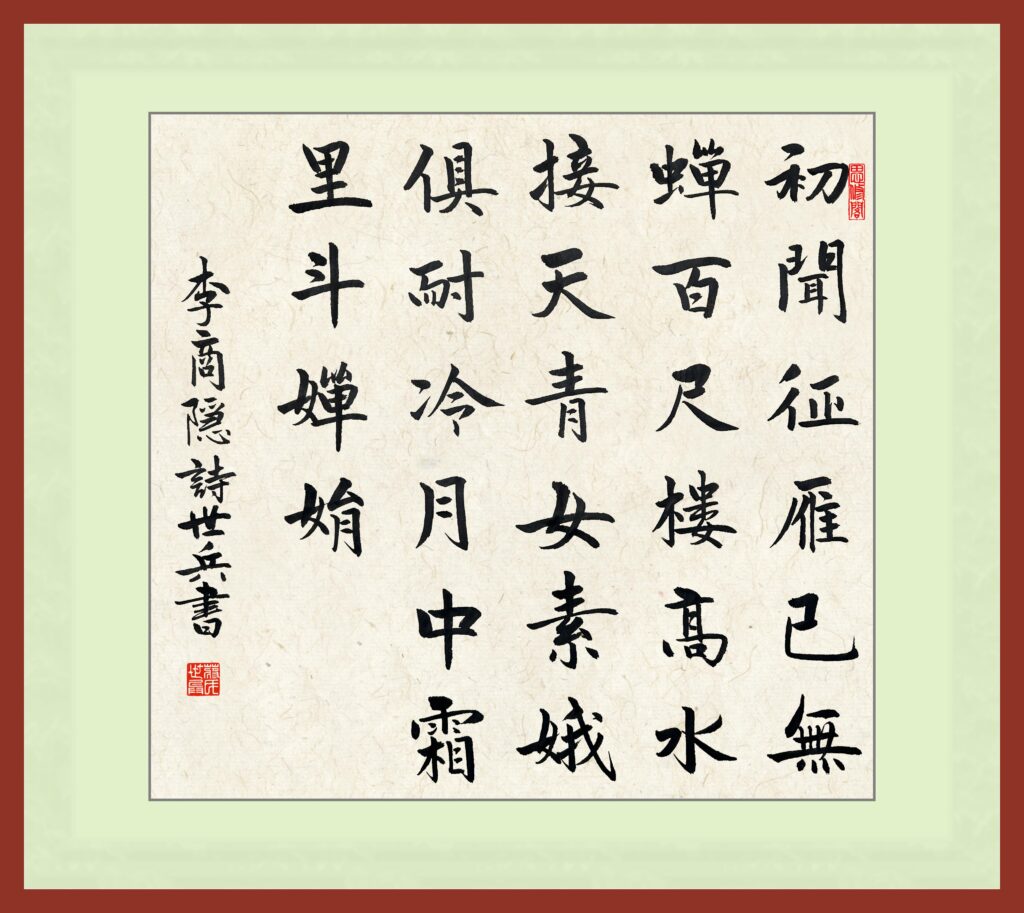 初聞征雁已無
蟬百尺楼髙水
接天青女素娥
俱耐冷月中霜
里斗嬋娟
李商隐詩世兵書